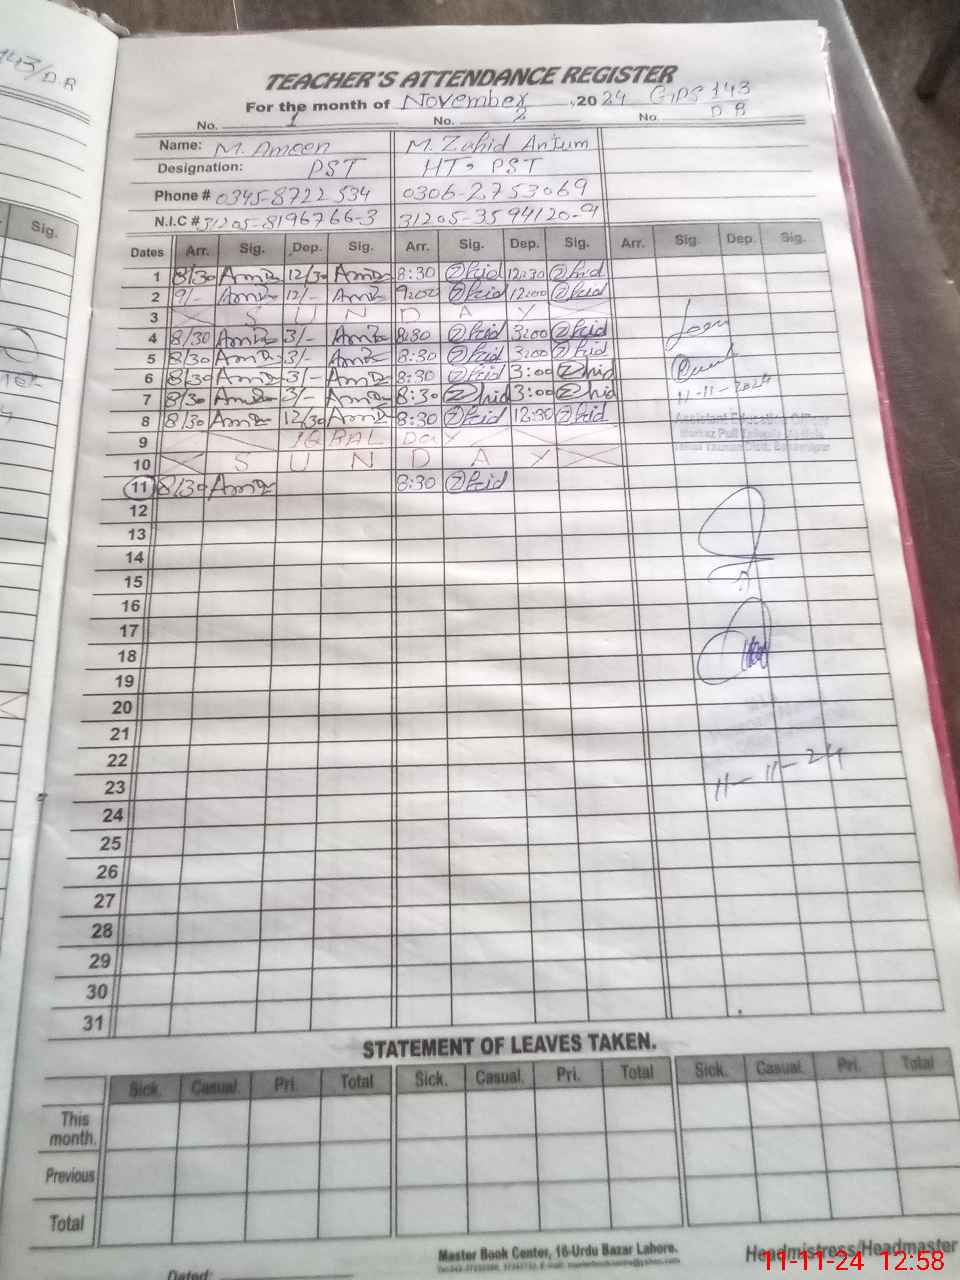 143/D.B
Sig.
TEACHER'S ATTENDANCE REGISTER
For the month of November ,2024 GPS 143
D.B
No. 1 No. 2 No.
Name: M. Ameen M. Zahid Anjum
Designation: PST HT, PST
Phone # 0345-8722534 0306-2753069
N.I.C # 31205-8196766-3 31205-3594120-9
Dates Arr. Sig. Dep. Sig. Arr. Sig. Dep. Sig. Arr. Sig. Dep. Sig.
1 8/30 12/30 8:30 Zahid 12:30 Zahid
2 9/- 12/- 9:00 Zahid 12:00 Zahid
3 S U N D A Y
4 8/30 3/- 8:30 Zahid 3:00 Zahid
5 8/30 3/- 8:30 Zahid 3:00 Zahid
6 8/30 3/- 8:30 Zahid 3:00 Zahid
7 8/30 3/- 8:30 Zahid 3:00 Zahid
11-11-2024
8 8/30 12/30 8:30 Zahid 12:30 Zahid
Assistant Education Officer
9 IQBAL DAY
10 S U N D A Y
11 8/30 8:30 Zahid
12
13
14
15
16
17
18
19
20
21
22
23 11-11-24
24
25
26
27
28
29
30
31
STATEMENT OF LEAVES TAKEN.
Sick. Casual. Pri. Total Sick. Casual. Pri. Total Sick. Casual. Pri. Total
This
month.
Previous
Total
Master Book Center, 16-Urdu Bazar Lahore.
Headmistress/Headmaster
Dated:
11-11-24 12:58